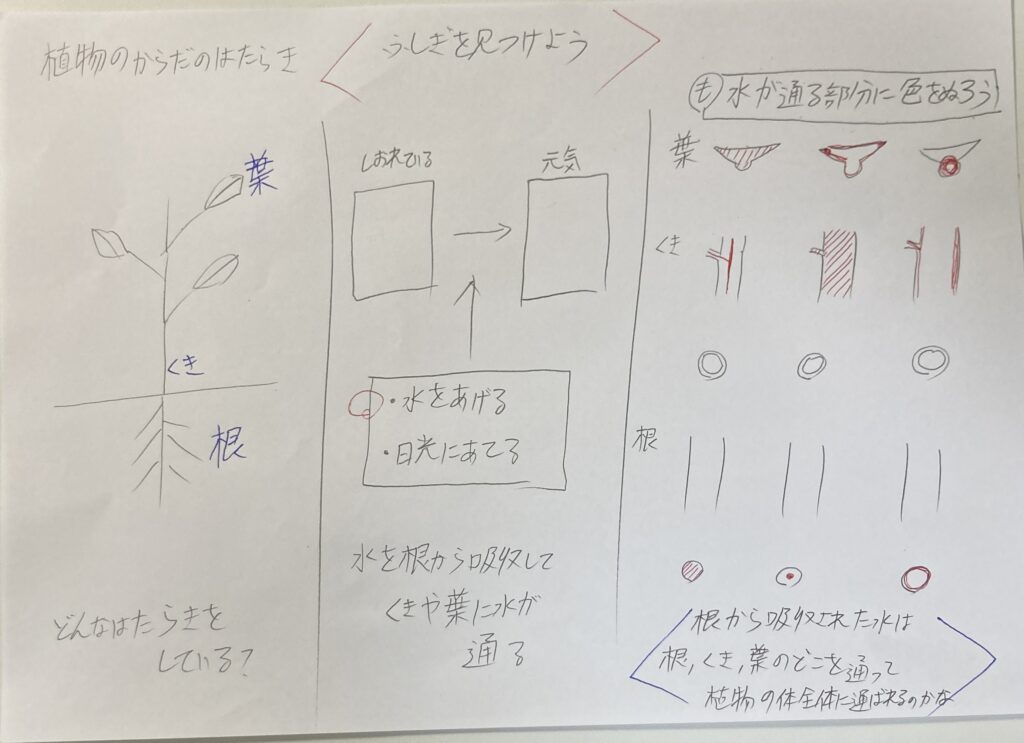 植物のからだのはたらき
葉
くき
根
どんなはたらきを
している?
ふしぎを見つけよう
しおれている
元気
・水をあげる
・日光にあてる
水を根から吸収して
くきや葉に水が
通る
も 水が通る部分に色をぬろう
葉
くき
根
根から吸収された水は
根,くき,葉のどこを通って
植物の体全体に運ばれるのかな